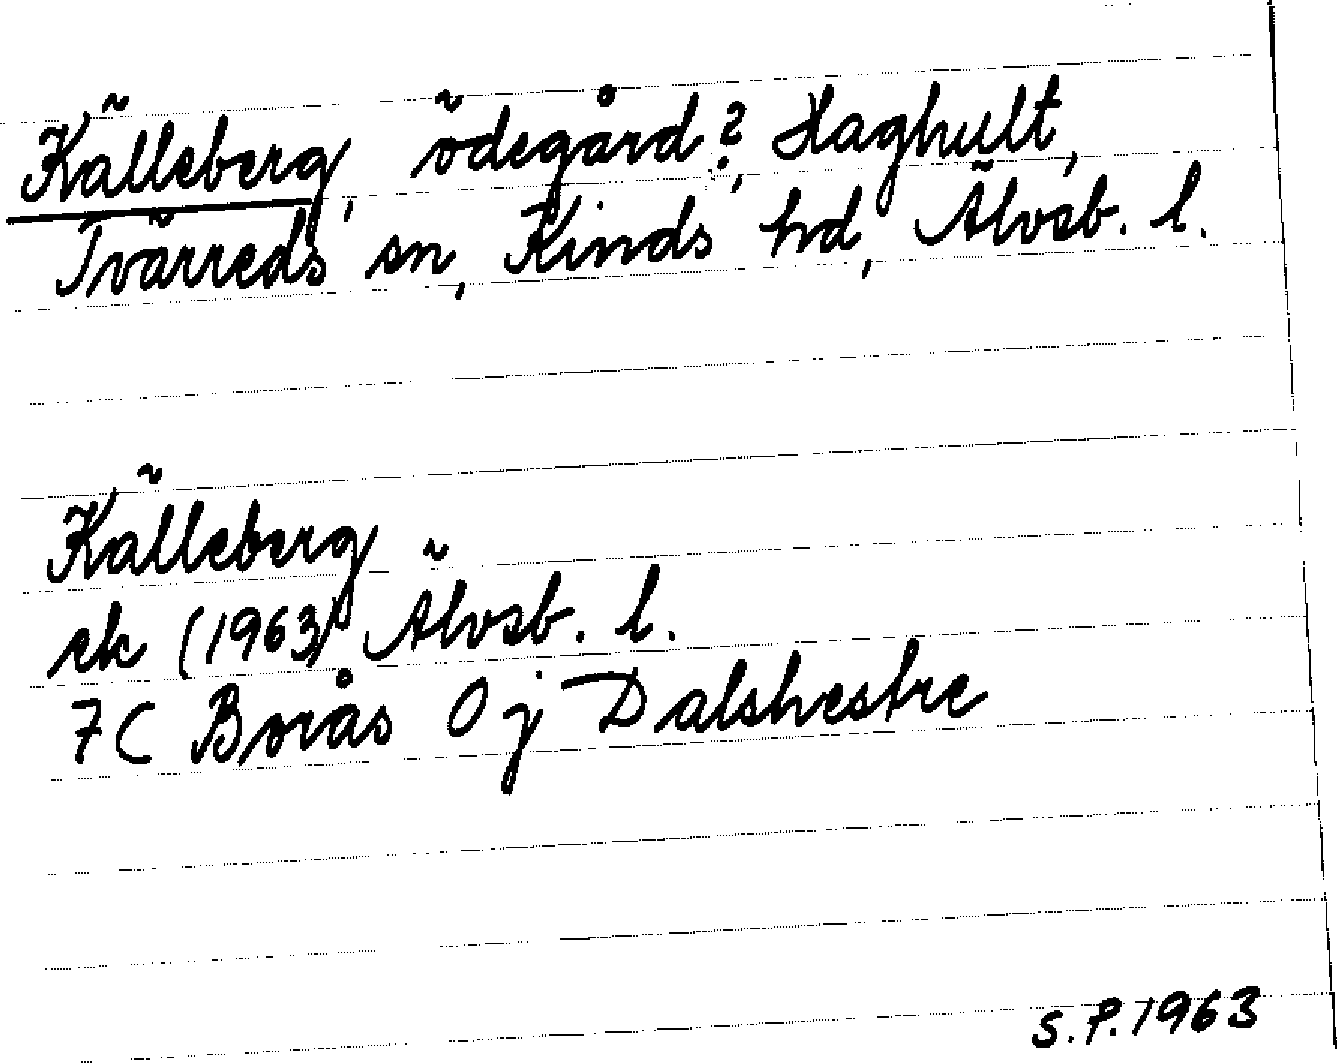 Källeberg, ödegård?, Haghult,
Tvärreds sn, Kinds hd, Älvsb. l.
Källeberg
ek (1963) Älvsb. l.
7C Borås Oj Dalshestre
S.P. 1963